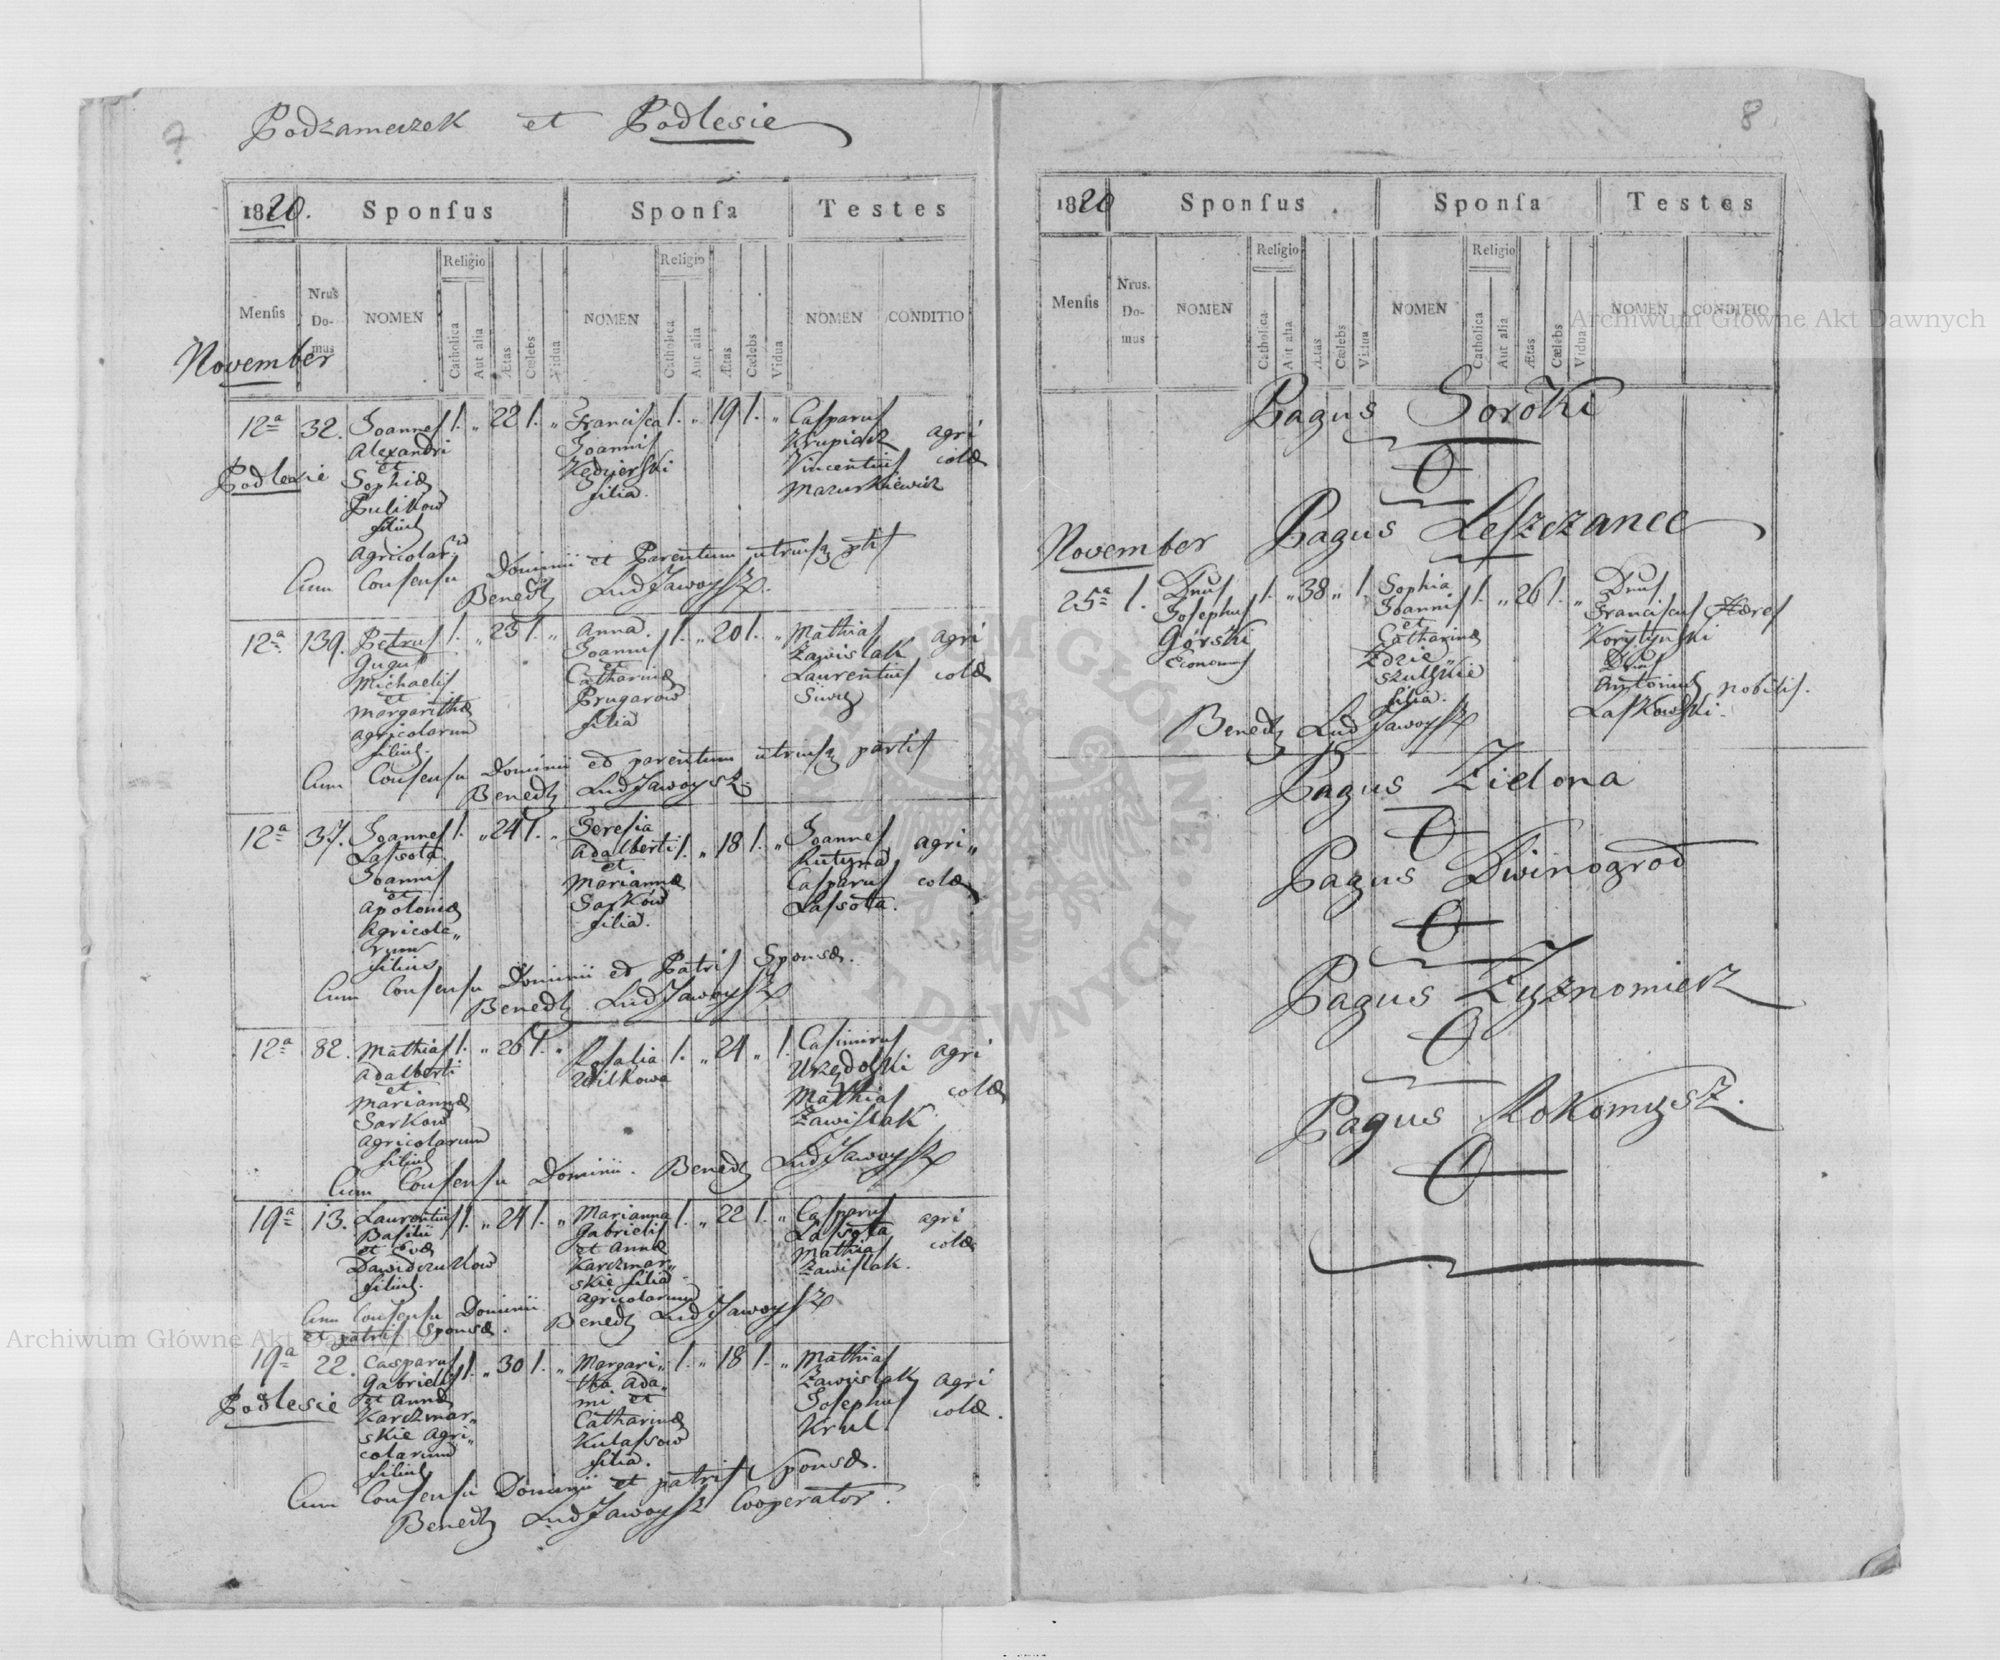 7
Podzameczek et Podlesie
1820. Sponsus Sponsa Testes
Mensis Nrus Domus NOMEN Religio Catholica Aut alia Ætas Cœlebs Vidua NOMEN Religio Catholica Aut alia Ætas Cœlebs Vidua NOMEN CONDITIO
November
12a 32. Joannes 1. „ 22 1. „ Francisca 1. „ 19 1. „ Casparus
Alexandri Joannis Krupiarz agri
et Kędzierski Vincentius colæ
Podlesie Sophiæ filia. Mazurkiewicz
Pulikow
filius
agricolarum
Cum Consensu Dominii et Parentum utriusq ptis
Benedt Lud Jaworski
12a 139. Petrus 1. „ 23 1. „ Anna 1. „ 20 1. „ Mathias agri
Joannis Zawislak
Michaelis et Laurentius colæ
et Catharinæ
Margarithæ Prugarow
agricolarum filia
filius.
Cum Consensu Dominii ed parentum utriusq partis
Benedt Lud Jaworski
12a 37. Joannes 1. „ 24 1. „ Teresia 1. „ 18 1. „ Joannes agri„
Lassota Adalberti Rutyna
Joannis et Casparus colæ
et Mariannæ Lassota.
Apoloniæ Sarkow
Agricola„ filia.
rum
filius
Cum Consensu Dominii ed Patris Sponsæ.
Benedt Lud Jaworski
12a 82. Mathias 1. „ 26 1. „ Rosalia 1. „ 24 „ 1. Casimirus agri
Adalberti Wilkowa Urzędolski
et Mathias colæ
Mariannæ Zawislak
Sarkow
agricolarum
filius
Cum Consensu Dominii. Benedt Lud Jaworski
19a 13. Laurentius 1. „ 24 1. „ Marianna 1. „ 22 1. „ Casparus agri
Basilii Gabrielis Lassota
et Evæ et Annæ Mathias colæ
Dawidczukow Karczmar„ Zawislak.
filius. skie filia
agricolarum
Cum Consensu Dominii
et patris Sponsæ. Benedt Lud Jaworski
19a 22. Casparus 1. „ 30 1. „ Margari„ 1. „ 18 1. „ Mathias
Gabrielis tha Ada„ Zawislak agri
Podlesie et Annæ mi et Josephus colæ.
Karczmar„ Catharinæ Krul.
skie agri„ Kulassow
colarum filia.
filius
Cum Consensu Dominii et patris Sponsæ.
Benedt Lud Jaworski Cooperator.
8
1820 Sponsus Sponsa Testes
Mensis Nrus. Domus NOMEN Religio Catholica Aut alia Ætas Cœlebs Vidua NOMEN Religio Catholica Aut alia Ætas Cœlebs Vidua NOMEN CONDITIO
Pagus Soroki
O
Pagus Leszczance
November
25a 1. Dnus 1. „ 38 „ 1. Sophia 1. „ 26 1. „ Dnus
Josephus Joannis Franciscus Hæres
Górski et Korytynski
Economus Catharinæ Dnus
Zdzie„ Antonius nobilis.
szulskie Laskowski.
filia.
Benedt Lud Jaworski
Pagus Zielona
O
Pagus Dwinogrod
O
Pagus Zyznomierz
O
Pagus Rokomysz.
O
Archiwum Główne Akt Dawnych
Archiwum Główne Akt Dawnych